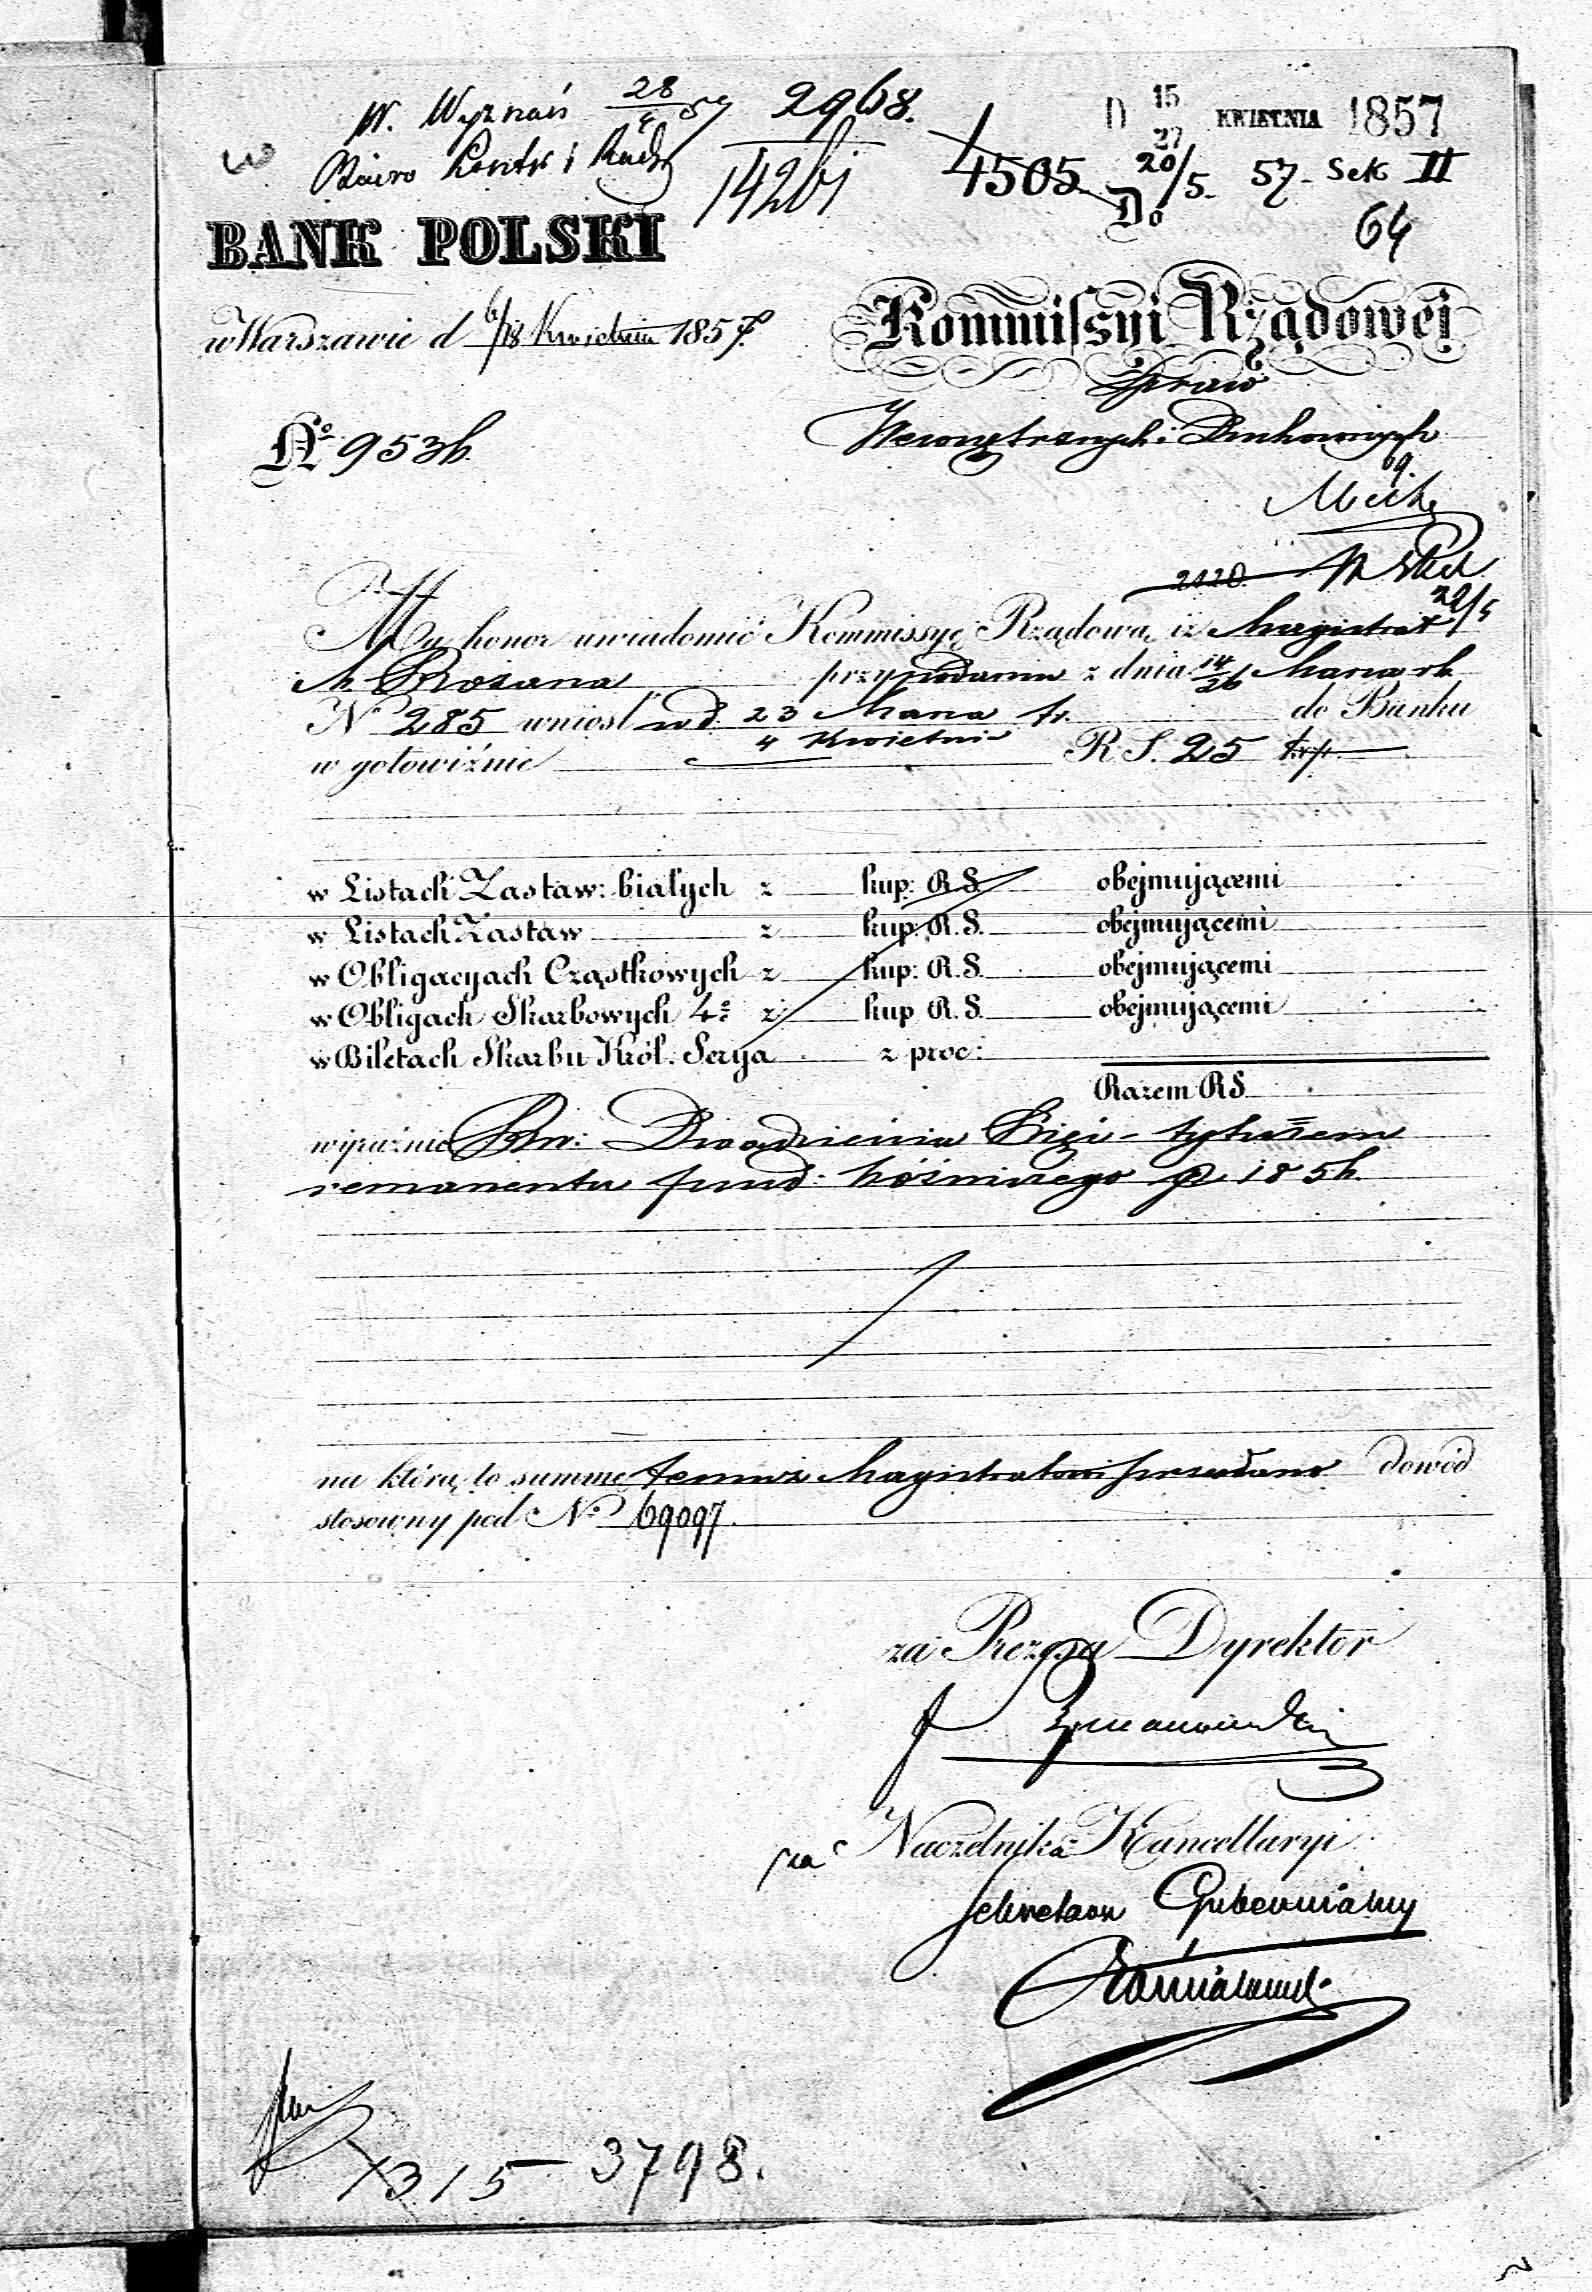 W. Wyznań 28/4 57 2968.
Biuro Kontr i Rach 14261
D 15/27 KWIETNIA 1857
4505 20/5 57 Sek II
64
BANK POLSKI
Do
w Warszawie d 6/18 Kwietnia 1857.
Kommissyi Rządowej
Spraw
Wewnętrznych i Duchownych
No 9536.
2120.
22/5
Ma honor uwiadomić Kommissyę Rządową, iż Magistrat
M. Rosana przy podaniu z dnia 14/26 Marca rb
No 285 wniosł w d. 23 Marca/4 Kwietnia tr. do Banku
w gotowiźnie R.S. 25 kop
w Listach Zastaw: białych z kup: R.S. obejmującemi
w Listach Zastaw z kup: R.S. obejmującemi
w Obligacyach Cząstkowych z kup: R.S. obejmującemi
w Obligach Skarbowych 4% z kup R.S. obejmującemi
w Biletach Skarbu Król. Serya z proc:
Razem RS
wyraźnie Dwadzieścia Pięć tytułem
remanentu fund: bóżniczego z 1856.
na którą to summę temuż Magistratowi przesłano dowód
stosowny pod No 69097.
za Prezesa Dyrektor
za Naczelnika Kancellaryi
Sekretarz Gubernialny
1315 3798.